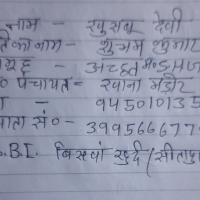 नाम - खुसबू देवी
तिका नाम - शुभम कुमार
ग्रह - अच्छत म० SHJ
० पंचायत - रवाना मडौर
- 945010135
ाता सं० - 399566677
.B.I. बिसवां खुर्द (सीतापु